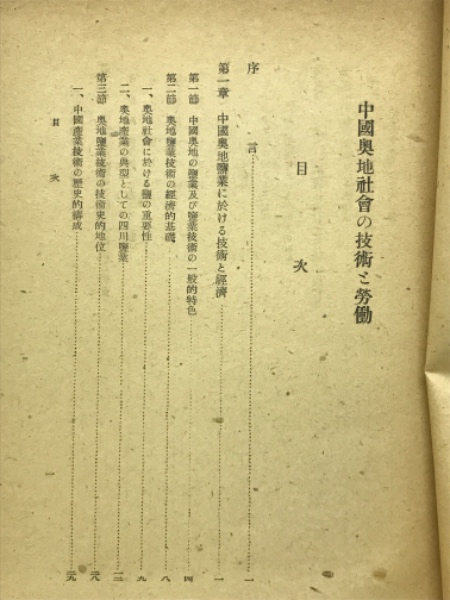 中國奧地社會の技術と勞働
目次
序言 一
第一章 中國奧地鹽業に於ける技術と經濟 一
第一節 中國奧地の鹽業及び鹽業技術の一般的特色 四
第二節 奧地鹽業技術の經濟的基礎 八
一、奧地社會に於ける鹽の重要性 九
二、奧地產業の典型としての四川鹽業 一二
第三節 奧地鹽業技術の技術史的地位 二八
一、中國產業技術の歷史的構成 二九
目次 一